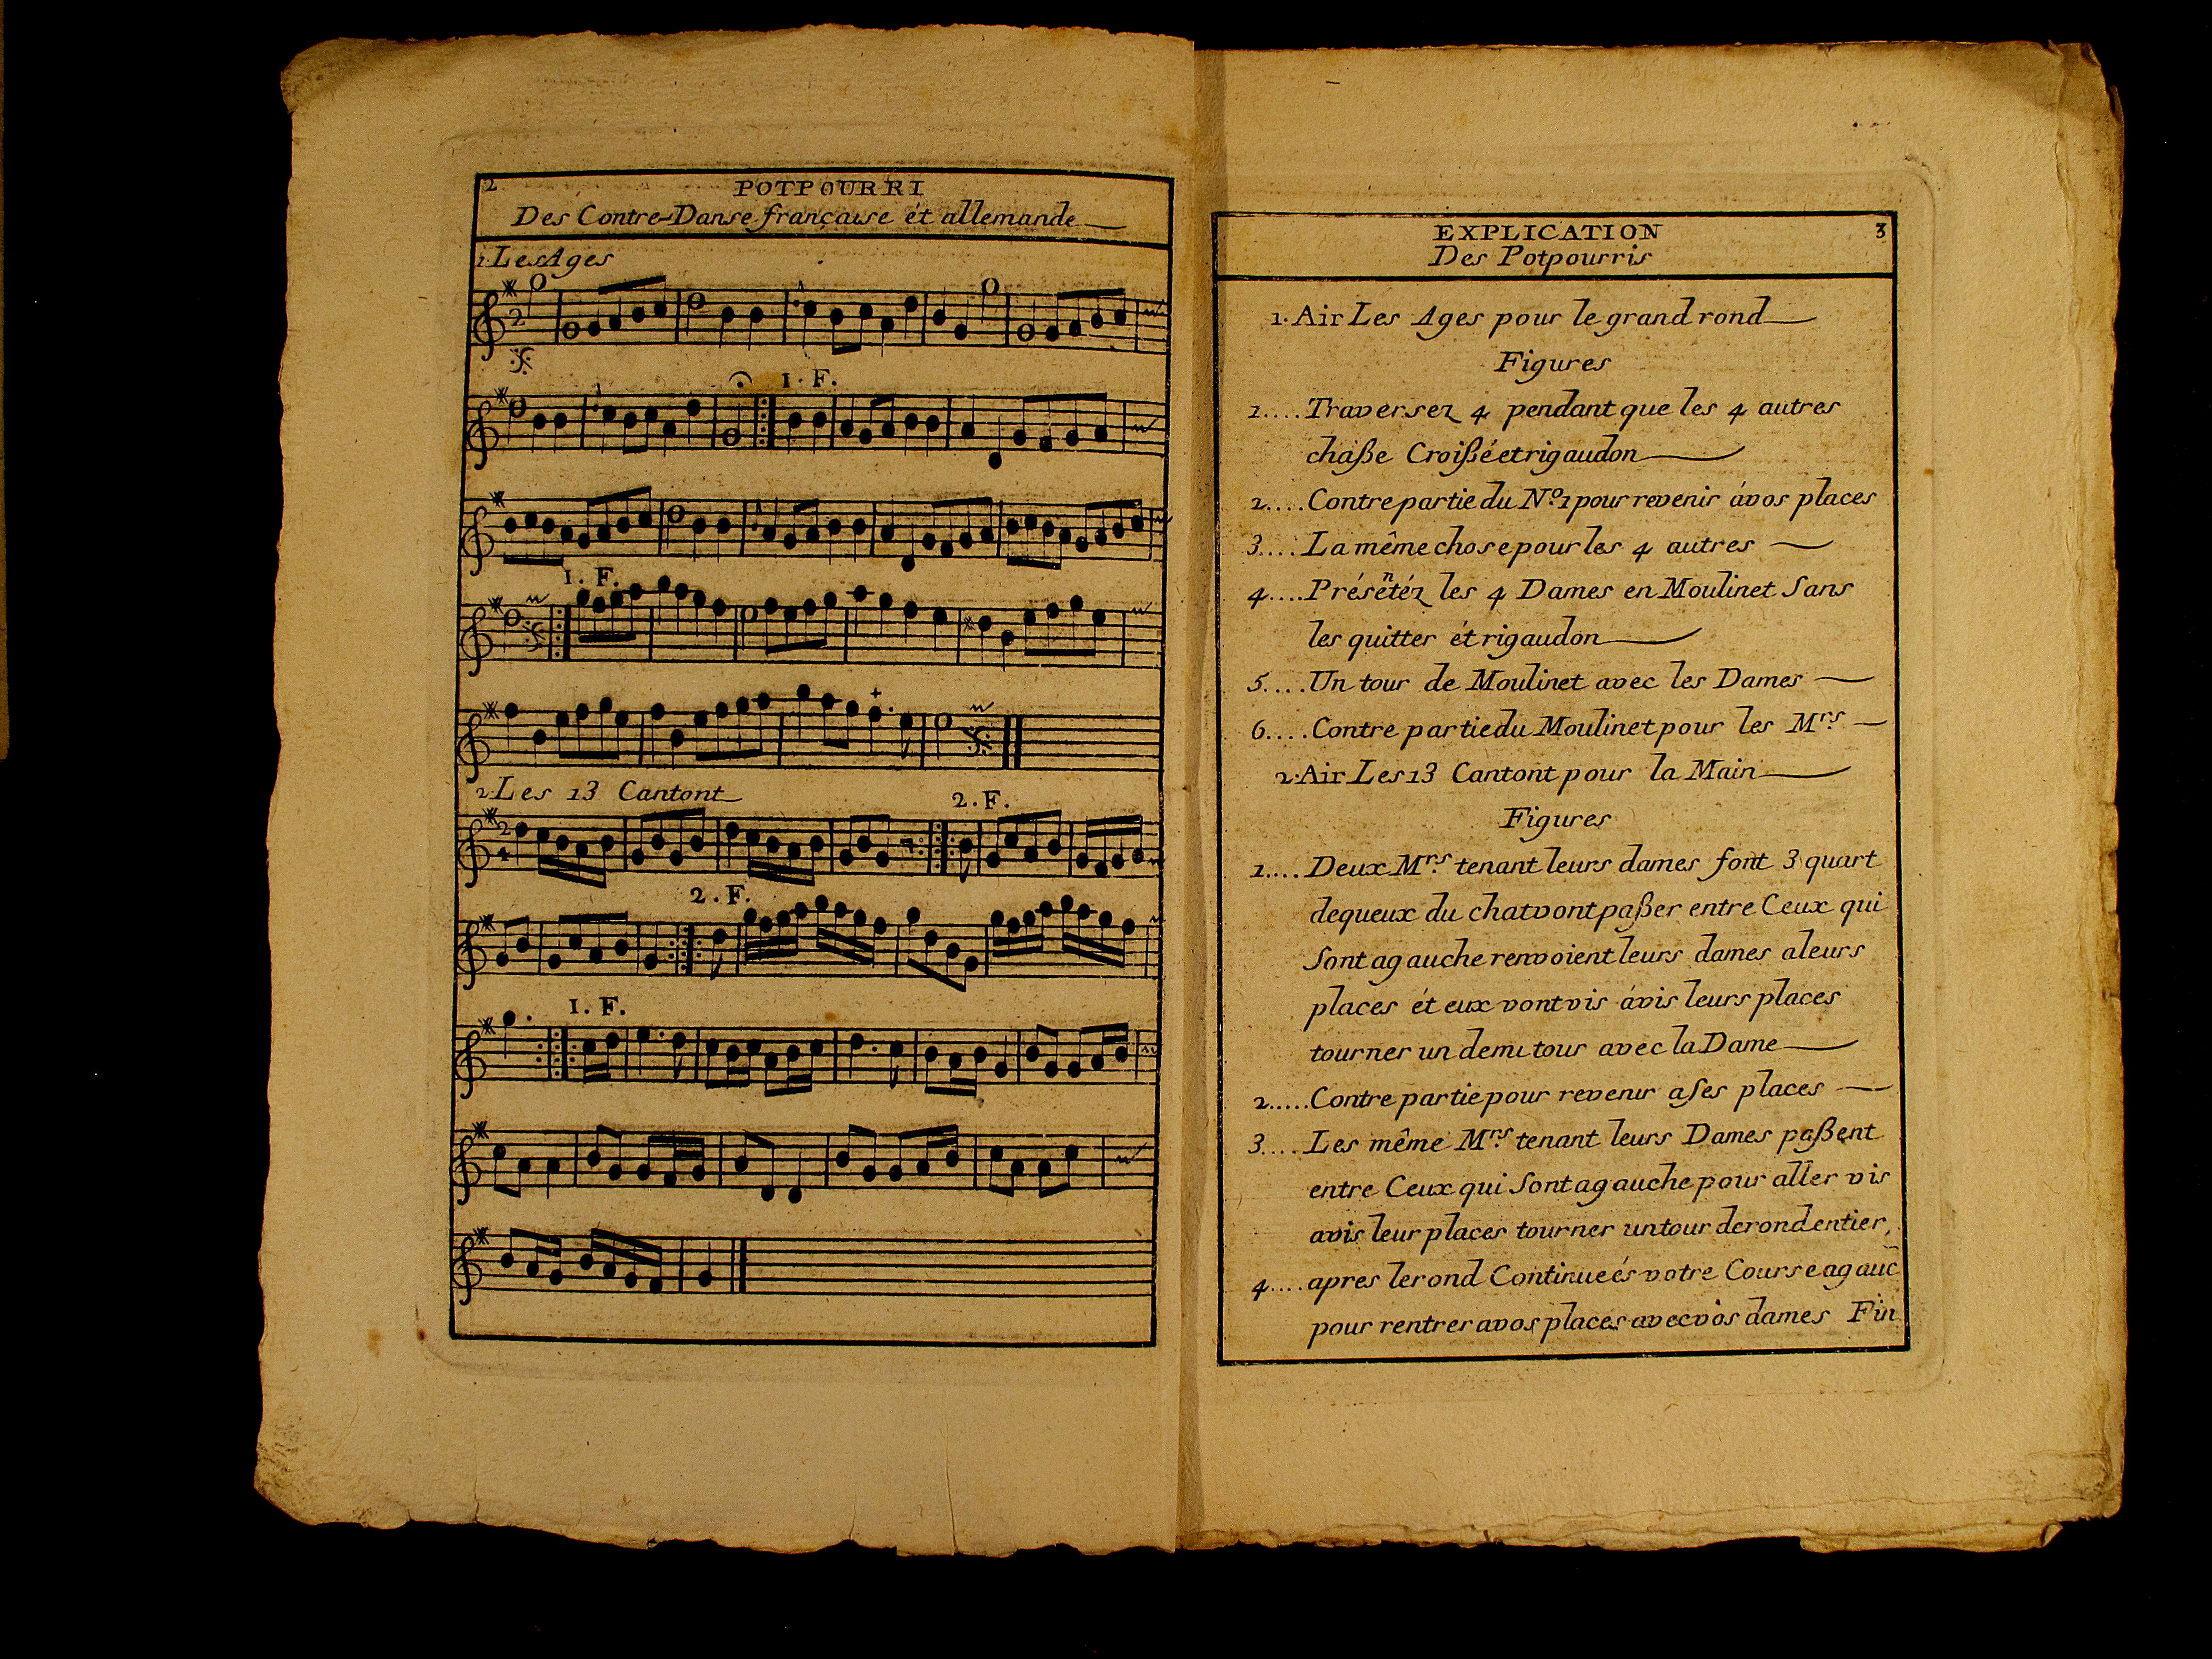 2
POTPOURRI
Des Contre-Danse française ét allemande
1. Les Ages
2
1. F.
1. F.
2. Les 13 Cantont
2. F.
2
4
2. F.
1. F.
EXPLICATION 3
Des Potpourris
1. Air Les Ages pour le grand rond
Figures
1.... Traversez 4 pendant que les 4 autres
chaße Croißé et rigaudon
2.... Contre partie du No. 1 pour revenir ávos places
3.... La même chose pour les 4 autres
4.... Présentéz les 4 Dames en Moulinet Sans
les quitter ét rigaudon
5.... Un tour de Moulinet avec les Dames
6.... Contre partie du Moulinet pour les Mrs.
2. Air Les 13 Cantont pour la Main
Figures
1.... Deux Mrs. tenant leurs dames font 3 quart
dequeux du chat vont paßer entre Ceux qui
Sont agauche renvoient leurs dames aleurs
places ét eux vont vis ávis leurs places
tourner un demi tour avec la Dame
2..... Contre partie pour revenir aSes places
3.... Les même Mrs. tenant leurs Dames paßent
entre Ceux qui Sont agauche pour aller vis
avis leur places tourner un tour de rond entier,
4.... apres le rond Continueés votre Course agauc̄
pour rentrer avos places avec vos dames Fin